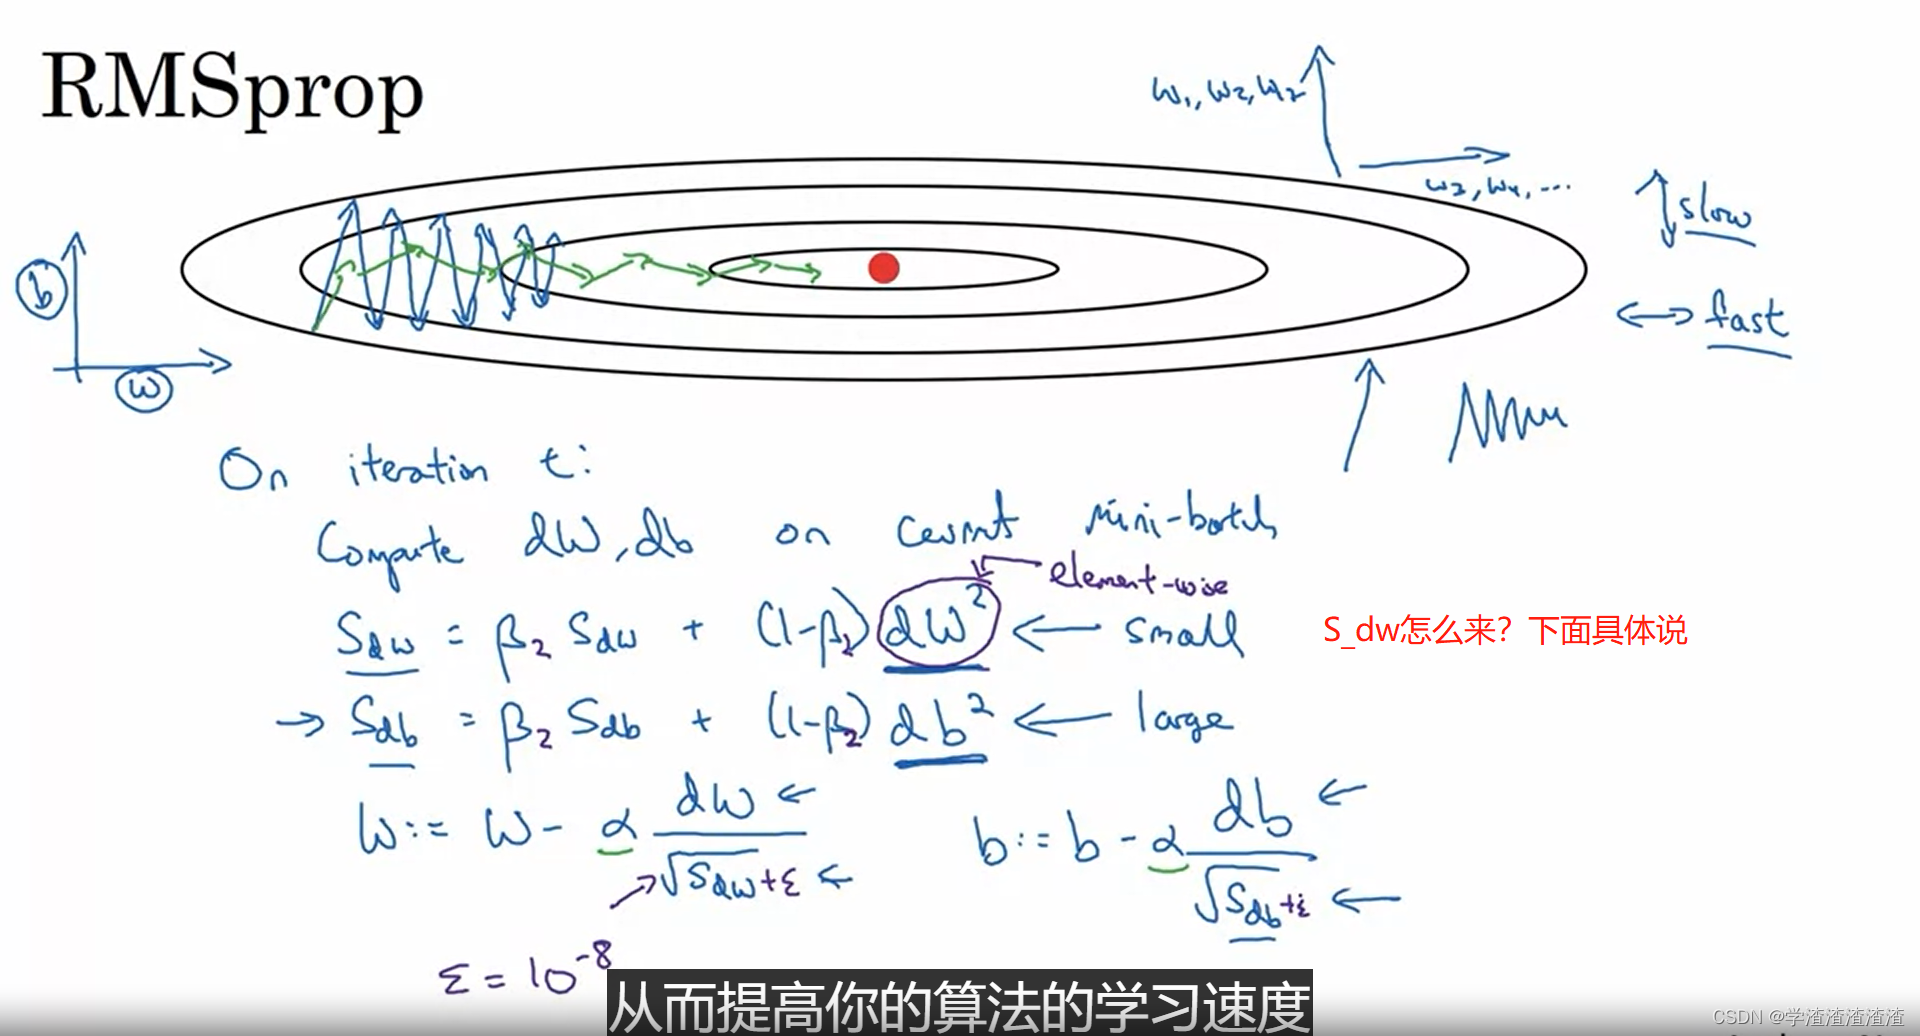 RMSprop
w₁, w₂, w₇
w₃, w₄, ...
slow
b
fast
w
On iteration t:
Compute dW, db on current mini-batch
element-wise
S_dw = β₂ S_dw + (1-β₂) dW² ← small
S_dw怎么来?下面具体说
→ S_db = β₂ S_db + (1-β₂) db² ← large
W := W - α dW / √S_dw + ε ←
b := b - α db / √S_db + ε ←
ε = 10⁻⁸
从而提高你的算法的学习速度
CSDN @学渣渣渣渣渣